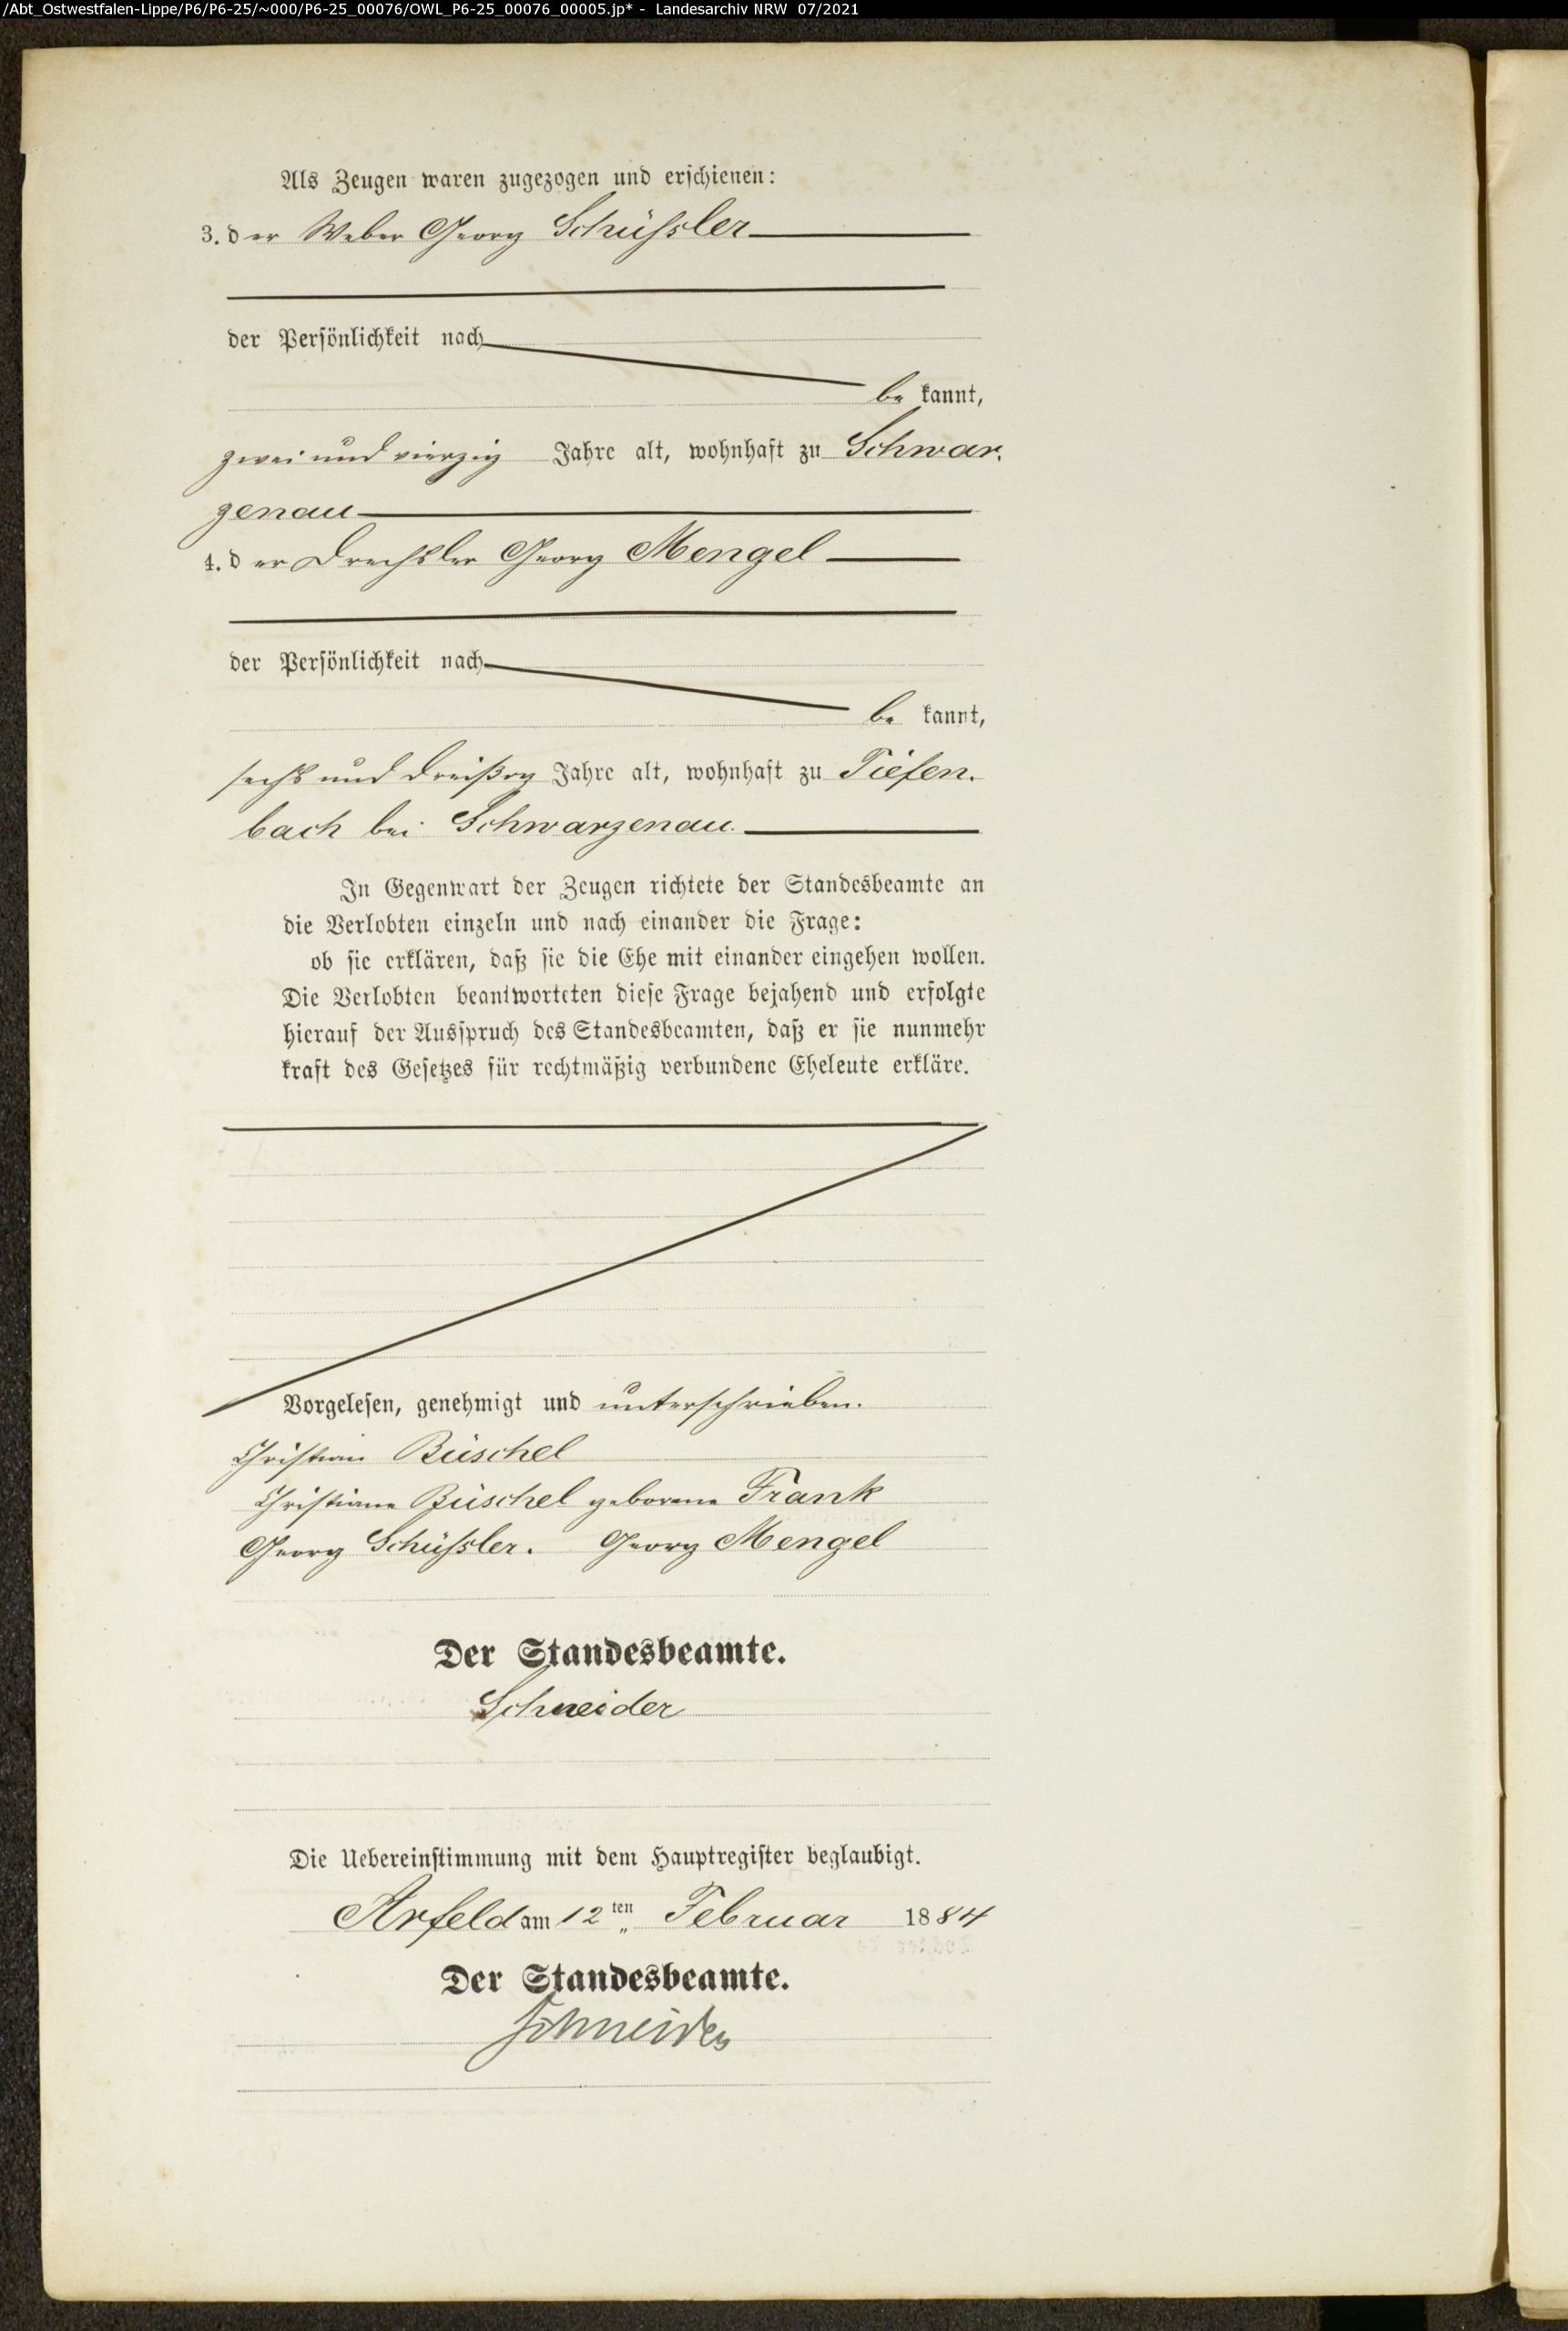 /Abt_Ostwestfalen-Lippe/P6/P6-25/~000/P6-25_00076/OWL_P6-25_00076_00005.jp* - Landesarchiv NRW 07/2021
Als Zeugen waren zugezogen und erschienen:
3. der Weber Georg Schüssler
der Persönlichkeit nach
bekannt,
zwei und vierzig Jahre alt, wohnhaft zu Schwar.
zenau
4. der Drechsler Georg Mengel
der Persönlichkeit nach
bekannt,
sechs und dreißig Jahre alt, wohnhaft zu Tiefen.
bach bei Schwarzenau.
In Gegenwart der Zeugen richtete der Standesbeamte an
die Verlobten einzeln und nach einander die Frage:
ob sie erklären, daß sie die Ehe mit einander eingehen wollen.
Die Verlobten beantworteten diese Frage bejahend und erfolgte
hierauf der Ausspruch des Standesbeamten, daß er sie nunmehr
kraft des Gesetzes für rechtmäßig verbundene Eheleute erkläre.
Vorgelesen, genehmigt und unterschrieben.
Christian Büschel
Christiane Büschel geborene Frank
Georg Schüssler. Georg Mengel
Der Standesbeamte.
Schneider
Die Uebereinstimmung mit dem Hauptregister beglaubigt.
Arfeld am 12ten Februar 1884
Der Standesbeamte.
Schneider